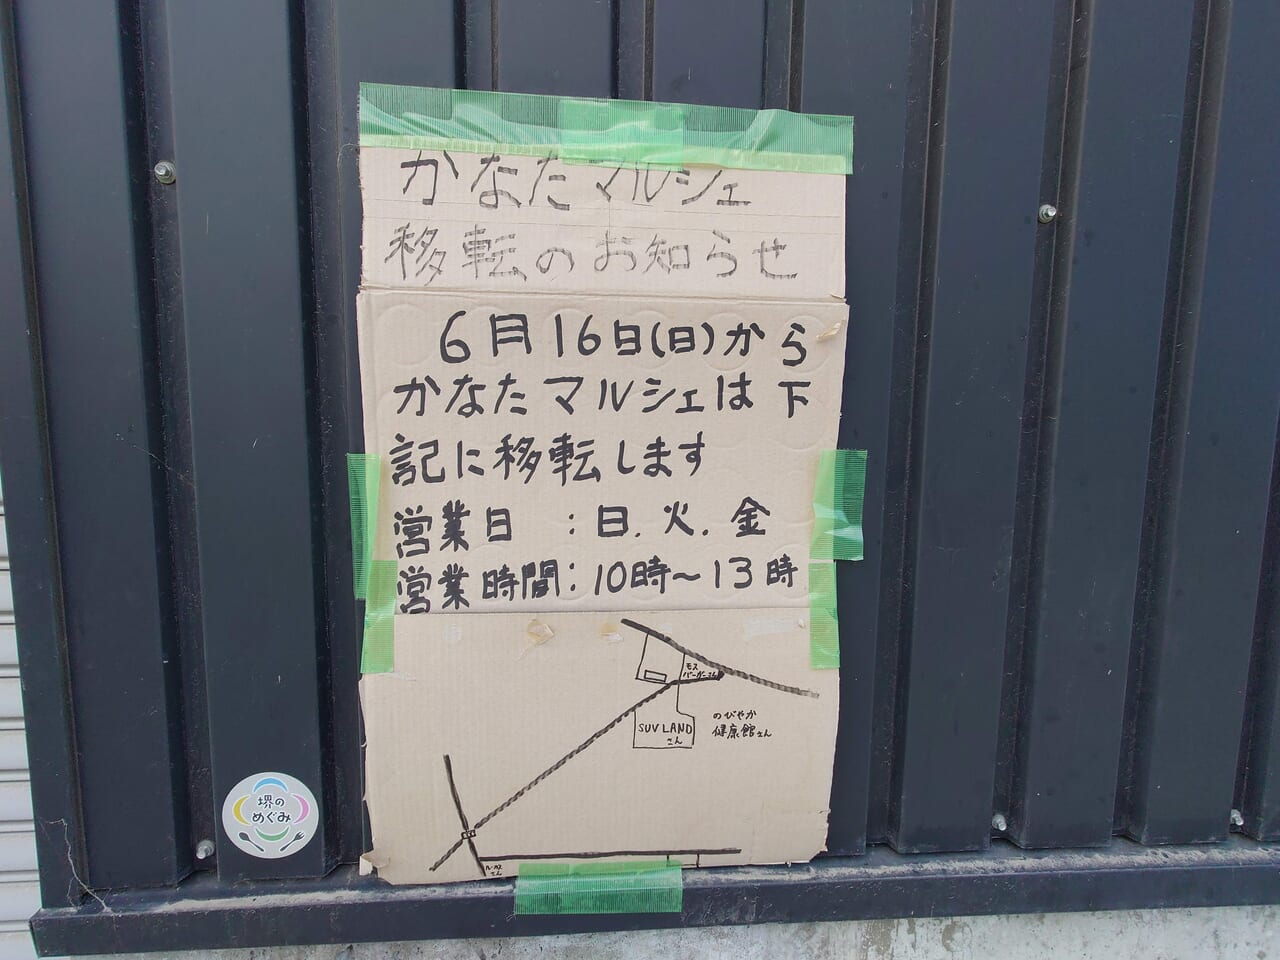 かなたマルシェ
移転のお知らせ
6月16日(日)から
かなたマルシェは下
記に移転します
営業日 : 日.火.金
営業時間:10時~13時
モス
バーガーさん
SUV LAND
さん
のびやか
健康館さん
さん
堺の
めぐみ